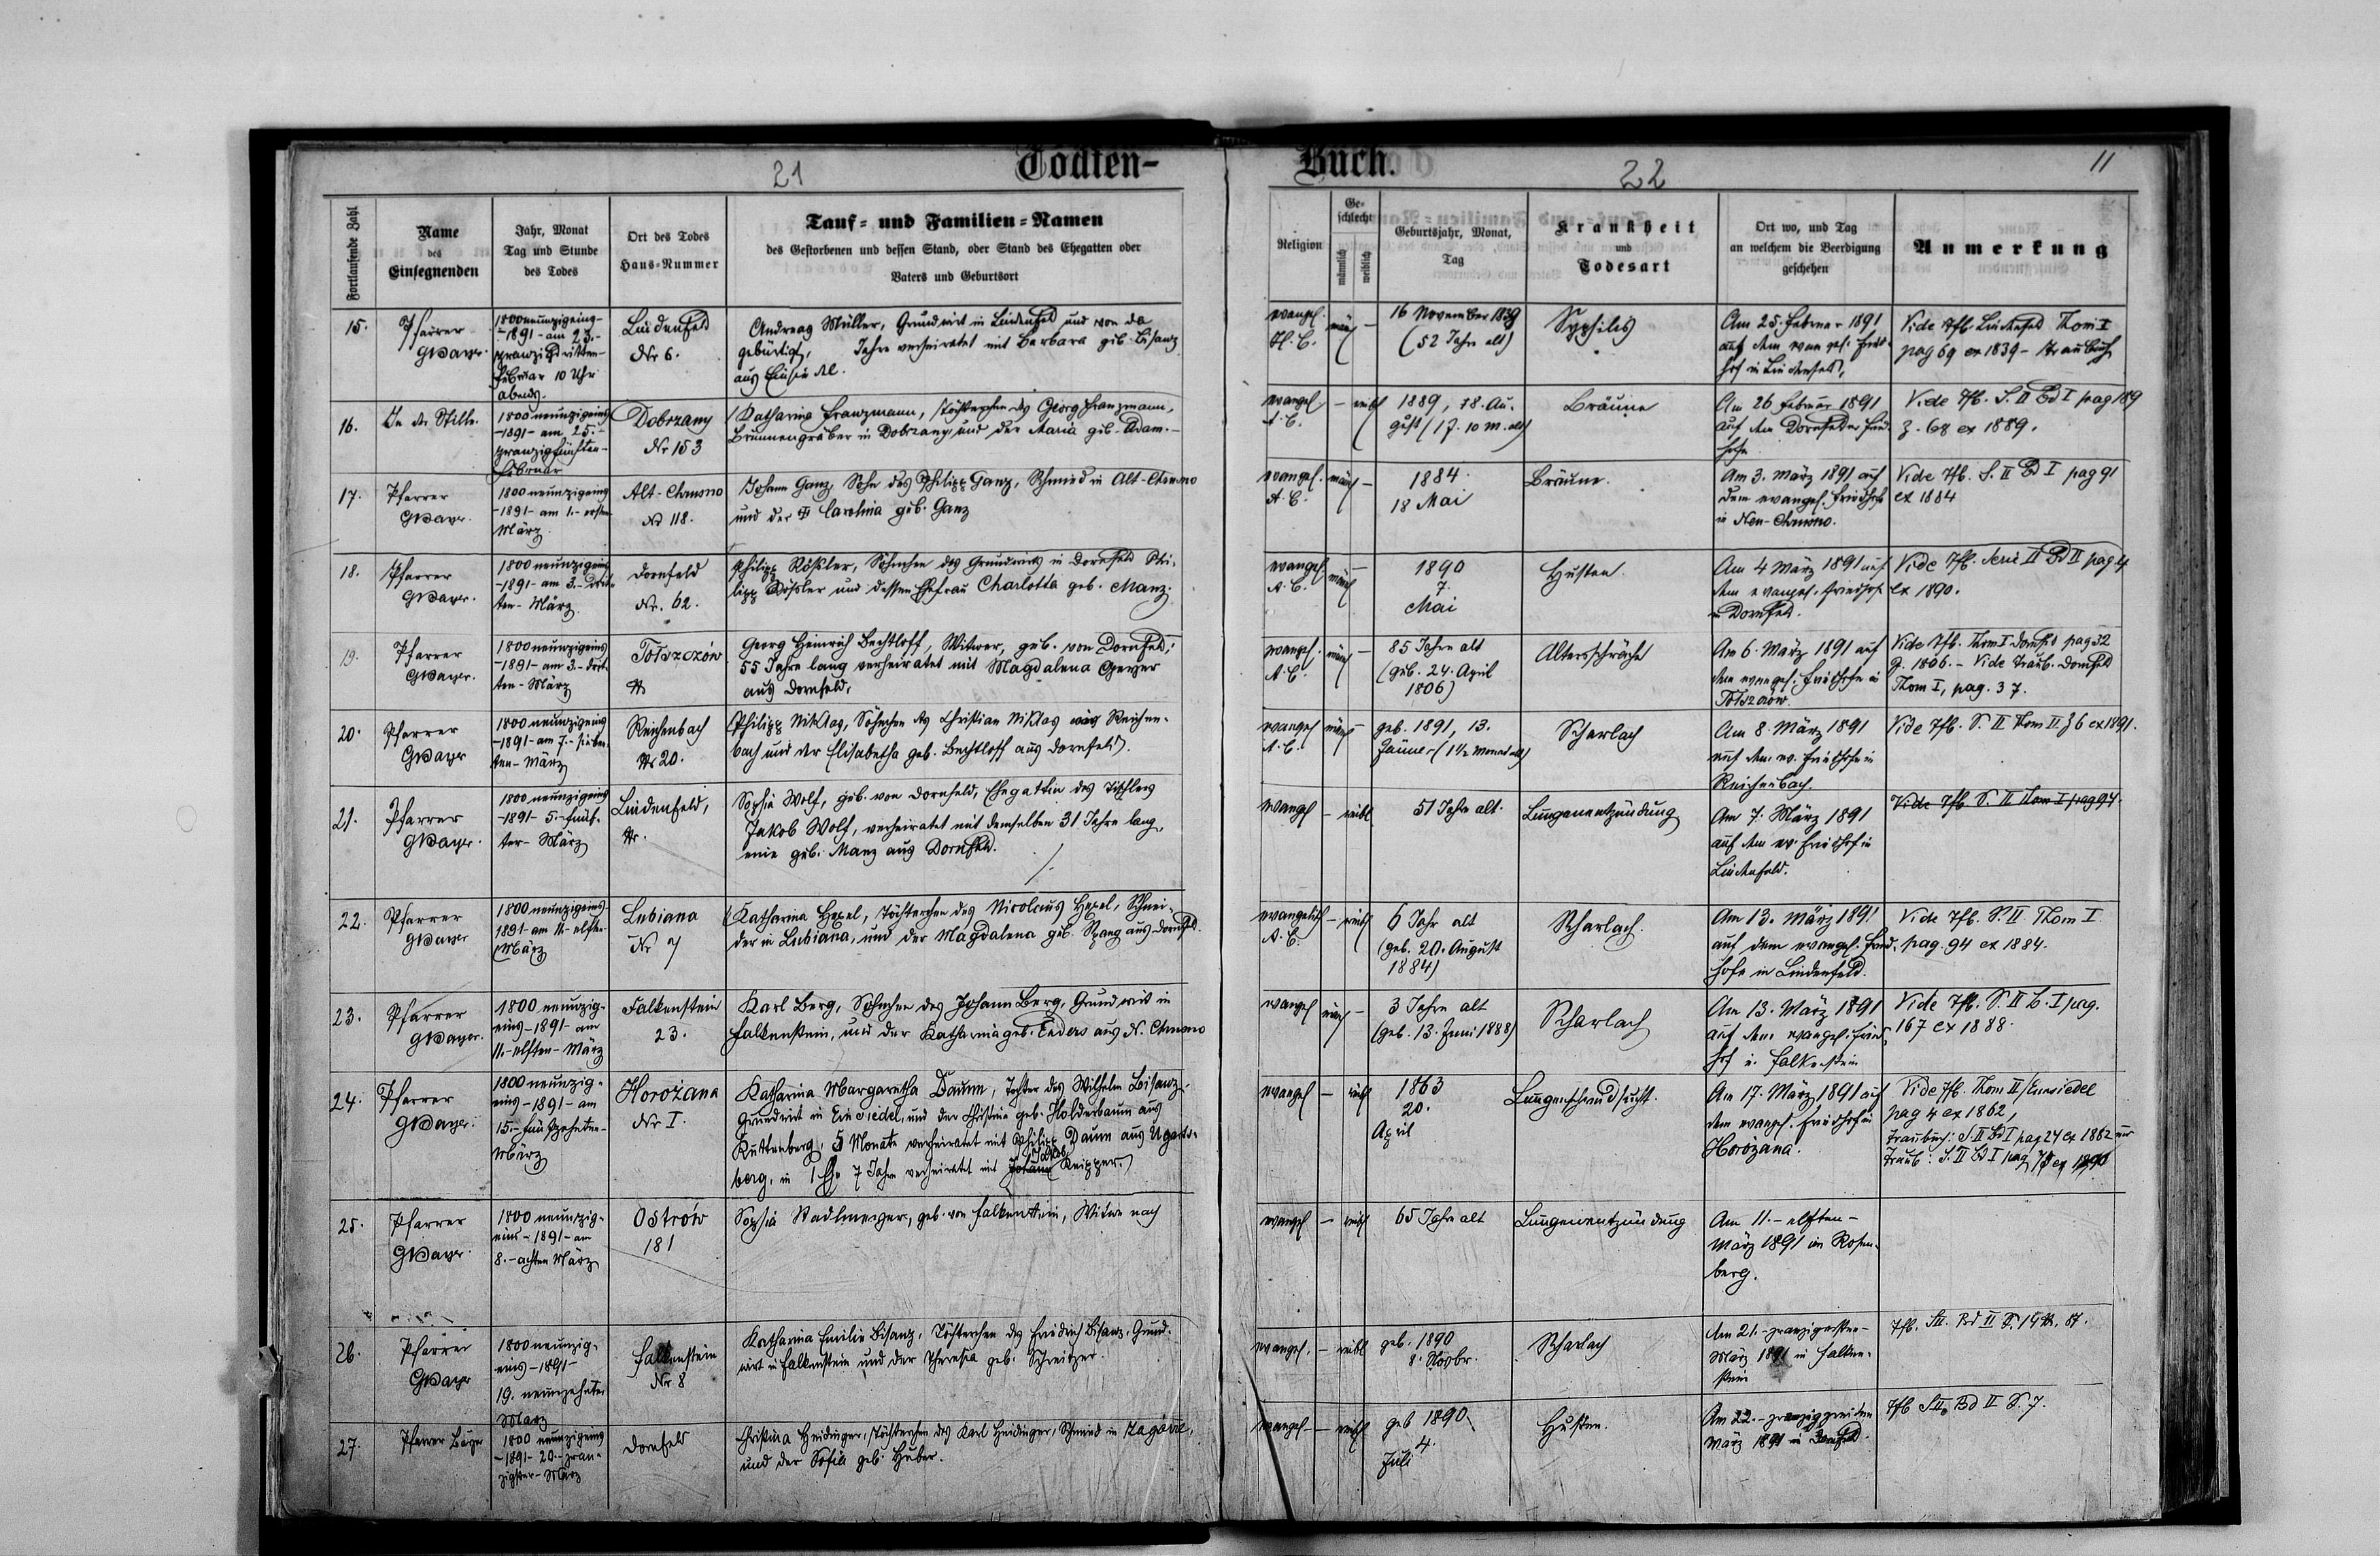 21
Todten-
Buch.
22
11
Fortlaufende Zahl
Name
des
Einsegnenden
Jahr, Monat
Tag und Stunde
des Todes
Ort des Todes
Haus-Nummer
Tauf- und Familien-Namen
des Gestorbenen und dessen Stand, oder Stand des Ehegatten oder
Vaters und Geburtsort
Religion
Ge-
schlecht
männlich
weiblich
Geburtsjahr, Monat,
Tag
Krankheit
und
Todesart
Ort wo, und Tag
an welchem die Beerdigung
geschehen
Anmerkung
15.
Pfarrer
1800 neunzigeins-
-1891- am 23.-
zwanzigdritten-
Februar 10 Uhr
abends.
Lindenfeld
Nr 6.
Andreas Müller, Grundwirt in Lindenfeld und von da
gebürtig, Jahre verheiratet mit Barbara geb. Bisanz
aus Einsiedel.
evangel.
H. C.
männl
-
16 November 1839
(52 Jahre alt)
Syphilis
Am 25. Februar 1891
auf dem evangel. Fried-
hof in Lindenfeld.
Vide Tfb. Lindenfeld Thom I
pag 69 ex 1839 - Traubuch
16.
In der Stille.
1800 neunzigeins
-1891- am 25.-
zwanzigfünften-
Februar
Dobrzany
Nr 153
Katharina Franzmann, Töchterchen des Georg Franzmann,
Brunnengräber in Dobrzany und der Maria geb. Adam.-
evangel
A. C.
-
weibl
1889, 18. Au-
gust (1 J. 10 M. alt)
Bräune
Am 26 Februar 1891
auf dem Dornfelder Fried-
hofe
Vide Tfb. S. II Bd I pag 189
Z. 68 ex 1889.
17.
Pfarrer
1800 neunzigeins
-1891- am 1.- ersten
März
Alt-Chrusno
Nr 118.
Johann Ganz, Sohn des Philipp Ganz, Schmied in Alt-Chrusno
und der Carolina geb. Ganz
evangel.
A. C.
männl
-
1884.
18 Mai
Bräune.
Am 3. März 1891 auf
dem evangel. Friedhofe
in Neu-Chrusno.
Vide Tfb. S. II Bd I pag 91
ex 1884
18.
Pfarrer
1800 neunzigeins
-1891- am 3.- drit-
ten- März
Dornfeld
Nr. 62.
Philipp Rößler, Söhnchen des Grundwirts in Dornfeld Phi-
lipp Rößler und dessen Ehefrau Charlotta geb. Manz.
evangel
A. C.
männl
-
1890
7.
Mai
Husten.
Am 4 März 1891 auf
dem evangel. Friedhof
in Dornfeld.
Vide Tfb. Serie II Bd II pag 4
ex 1890.
19.
Pfarrer
1800 neunzigeins
-1891- am 3.- drit-
ten- März
Tołszczów
Nr
Georg Heinrich Bechtloff, Witwer, geb. von Dornfeld,
55 Jahre lang verheiratet mit Magdalena Geyer
aus Dornfeld.
evangel.
A. C.
männl
-
85 Jahre alt
(geb. 24. April
1806)
Altersschwäche
Am 6. März 1891 auf
dem evangel. Friedhofe in
Tołszczów
Vide Tfb. Thom I Dornfeld pag 32
1806. - Vide Traub. Dornfeld
Thom I, pag. 37.
20.
Pfarrer
1800 neunzigeins
-1891- am 7.- sieben-
ten- März
Reichenbach
Nr 20.
Philipp Niklas, Söhnchen des Christian Niklas aus Reichen-
bach und der Elisabetha geb. Bechtloff aus Dornfeld.
evangel
A. C.
männl
-
geb. 1891, 13.
Jänner (1 1/2 Monat alt)
Scharlach
Am 8. März 1891
auf dem ev. Friedhofe in
Reichenbach.
Vide Tfb. S. II Thom II Z 6 ex 1891.
21.
Pfarrer
1800 neunzigeins
-1891- 5.-fünf-
ter- März
Lindenfeld,
Nr.
Sophia Wolf, geb. von Dornfeld, Ehegattin des Tischlers
Jakob Wolf, verheiratet mit demselben 31 Jahre lang,
eine geb. Manz aus Dornfeld.
evangel
-
weibl
51 Jahre alt.
Lungenentzündung
Am 7. März 1891
auf dem ev. Friedhof in
Lindenfeld.
Vide Tfb S. II Thom I pag 94.
22.
Pfarrer
1800 neunzigeins-
1891- am 11.- elften
März
Lubiana
Nr 7
Katharina Hexel, Töchterchen des Nicolaus Hexel, Schnei-
der in Lubiana, und der Magdalena geb. Spang aus Dornfeld.
evangelisch
A. C.
-
weibl
6 Jahr alt
(geb. 20. August
1884)
Scharlach.
Am 13. März 1891
auf dem evangel. Fried-
hofe in Lindenfeld.
Vide Tfb. S. II Thom I
pag. 94 ex 1884.
23.
Pfarrer
1800 neunzig-
eins-1891- am
11.-elften- März
Falkenstein
23.
Karl Berg, Söhnchen des Johann Berg, Grundwirt in
Falkenstein, und der Katharina geb. Enders aus N. Chrusno
evangel
männl
-
3 Jahre alt
(geb. 13. Juni 1888)
Scharlach
Am 13. März 1891
auf dem evangel. Fried-
hof in Falkenstein
Vide Tfb. S. II B. I pag.
167 ex 1888.
24.
Pfarrer
1800 neunzig-
eins-1891- am
15.-fünfzehnten-
März
Horożana
Nr I.
Katharina Margaretha Daum, Tochter des Wilhelm Bisanz,
Grundwirt in Einsiedel, und der Christina geb. Holderbaum aus
Kuttenberg, 5 Monate verheiratet mit Philipp Daum aus Ugarts-
berg, in 1 Ehe 7 Jahre verheiratet mit Johann Knipper.
evangel
-
weibl
1863
20.
April
Lungenschwindsucht.
Am 17. März 1891 auf
dem evangel. Friedhof in
Horożana.
Vide Tfb. Thom II/Einsiedel
pag 4 ex 1862,
Traubuch: S. II Bd I pag 24 ex 1882 und
Traub: S. II Bd I pag 75 ex 1890
25.
Pfarrer
1800 neunzig-
eins-1891- am
8.-achten März
Ostrów
181
Sophia Stadlmeyer, geb. von Falkenstein, Witwe nach
evangel
-
weibl
65 Jahre alt
Lungenentzündung
Am 11.- elften-
März 1891 in Rosen-
berg.
26.
Pfarrer
1800 neunzig-
eins-1891-
19. neunzehnten
März
Falkenstein
Nr 8
Katharina Emilie Bisanz, Töchterchen des Friedrich Bisanz, Grund-
wirt in Falkenstein und der Theresia geb. Schweitzer.
evangel.
-
weibl
geb. 1890
8. Novbr.
Scharlach
Am 21.-zwanzigersten-
März 1891 in Falken-
stein
Tfb. SII. Bd II
27.
Pfarrer
1800 neunzigeins
-1891- 20.-zwan-
zigster-März
Dornfeld
Christina Heidinger, Töchterchen des Karl Heidinger, Schmied in
und der Sofia geb. Huber.
evangel
-
weibl
geb 1890
4.
Juli
Husten.
Am 22.-zwanzigzweiten
März 1891 in Dornfeld.
Tfb SII, Bd II S. 7.